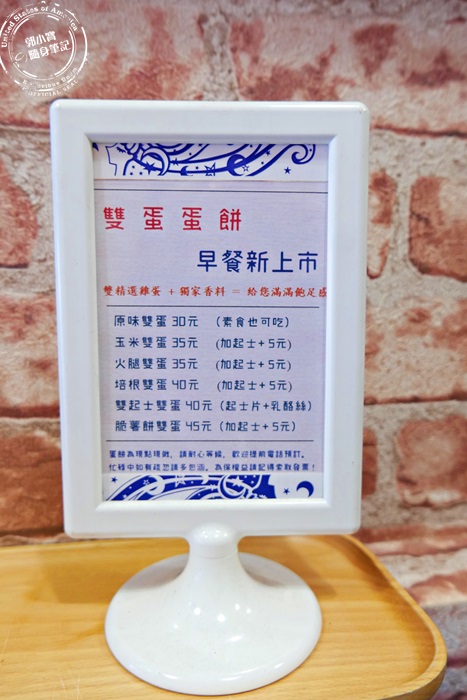 United States of America
郭小寶
隨身筆記
OFFICIAL SEAL
雙蛋蛋餅
早餐新上市
雙精選雞蛋 + 獨家香料 = 給您滿滿飽足感
原味雙蛋 30元 (素食也可吃)
玉米雙蛋 35元 (加起士+5元)
火腿雙蛋 35元 (加起士+5元)
培根雙蛋 40元 (加起士+5元)
雙起士雙蛋 40元 (起士片+乳酪絲)
脆薯餅雙蛋 45元 (加起士+5元)
蛋餅為現點現做，請耐心等候，歡迎提前電話預訂。
忙碌中如有疏忽請多包涵，為保權益請記得索取發票！